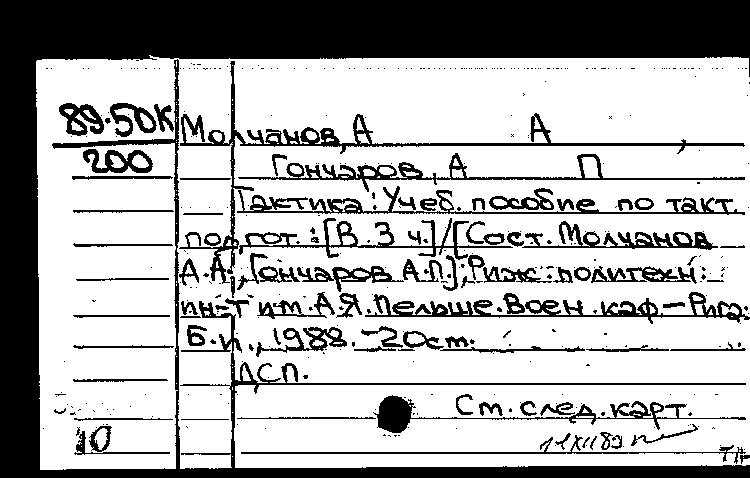 89-50К Молчанов, А А ,
200 Гончаров, А П
Тактика: Учеб. пособие по такт.
подгот.: [В 3 ч.]/[Сост. Молчанов
А.А., Гончаров А.П.]; Риж. политехн.
ин-т им. А.Я. Пельше. Воен. каф. — Рига:
Б.и., 1988. - 20 см.
ДСП.
См. след. карт.
10